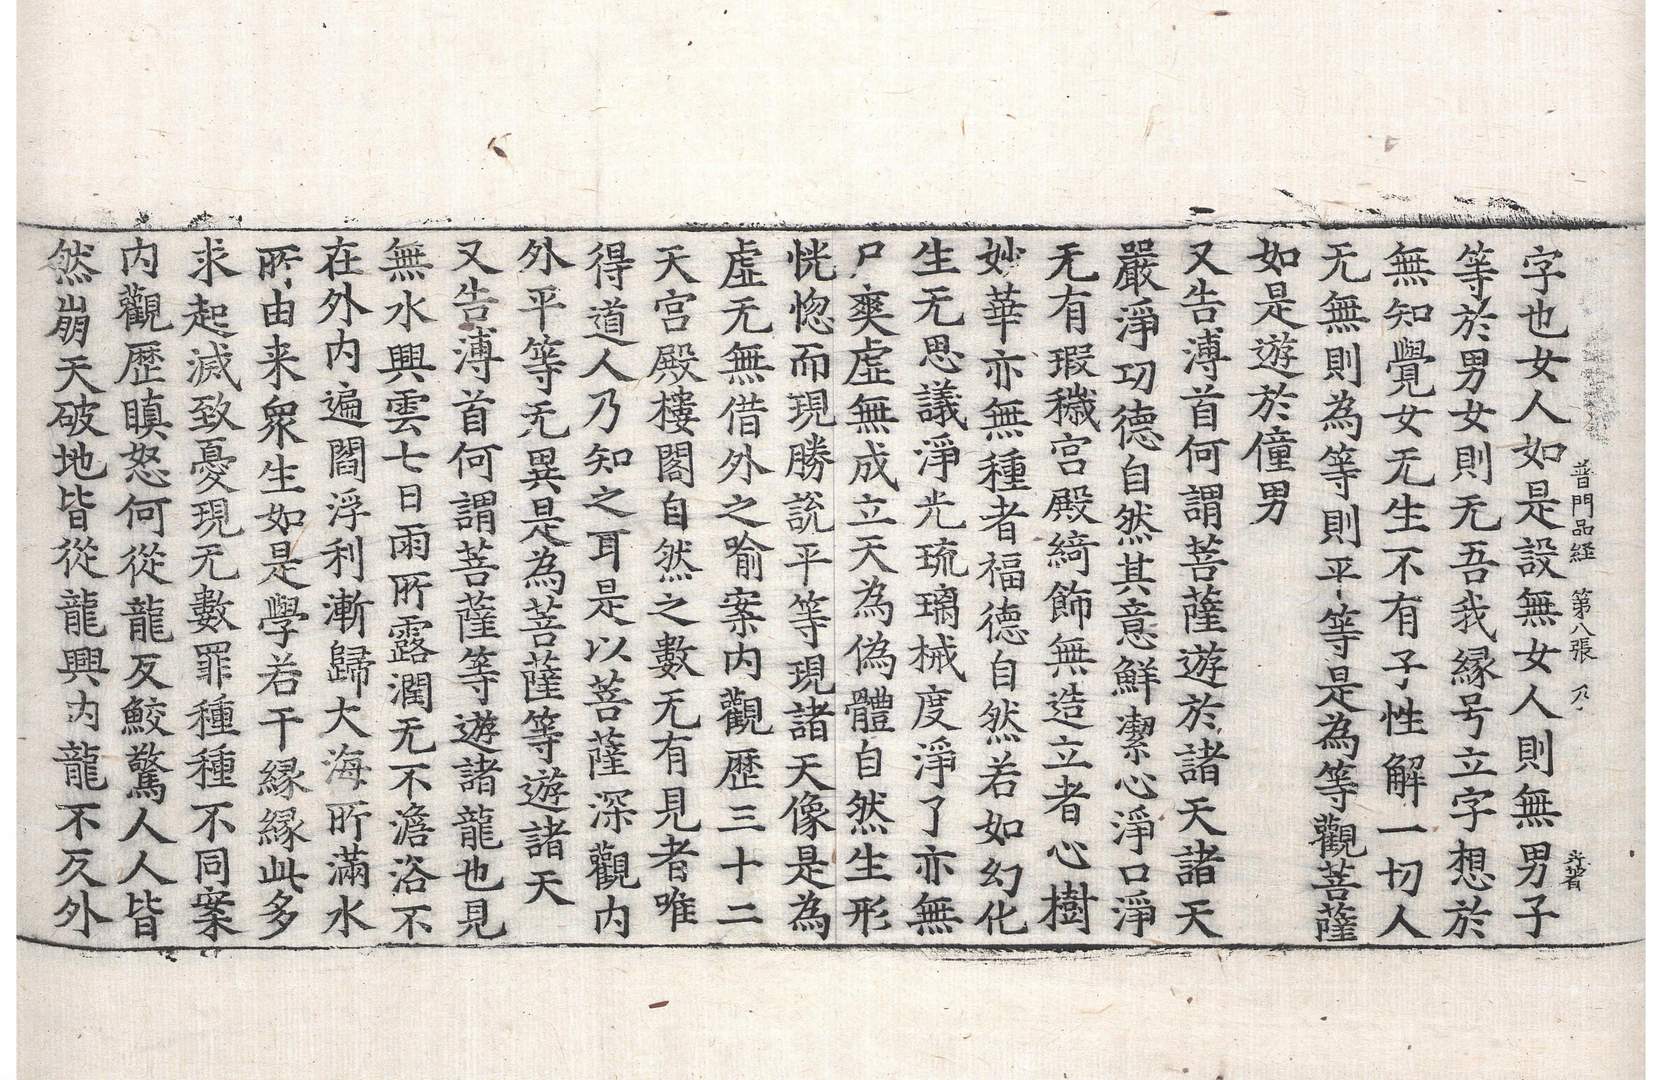 普門品経 第八張 乃
字也女人如是設無女人則無男子
等於男女則无吾我縁号立字想於
無知覺女无生不有子性解一切人
无無則為等則平等是為等觀菩薩
如是遊於僮男
又告溥首何謂菩薩遊於諸天諸天
嚴淨功德自然其意鮮潔心淨口淨
无有瑕穢宮殿綺飾無造立者心樹
妙華亦無種者福德自然若如幻化
生无思議淨光琉璃械度淨了亦無
尸爽虛無成立天為偽體自然生形
恍惚而現勝說平等現諸天像是為
虛无無借外之喻案内觀歷三十二
天宮殿樓閣自然之數无有見者唯
得道人乃知之耳是以菩薩深觀内
外平等无異是為菩薩等遊諸天
又告溥首何謂菩薩等遊諸龍也見
無水興雲七日雨所露潤无不澹洽不
在外内遍閻浮利漸歸大海所滿水
所由来衆生如是學若干縁縁此多
求起滅致憂現无數罪種種不同案
内觀歷瞋怒何從龍反鮫驚人人皆
然崩天破地皆從龍興内龍不反外